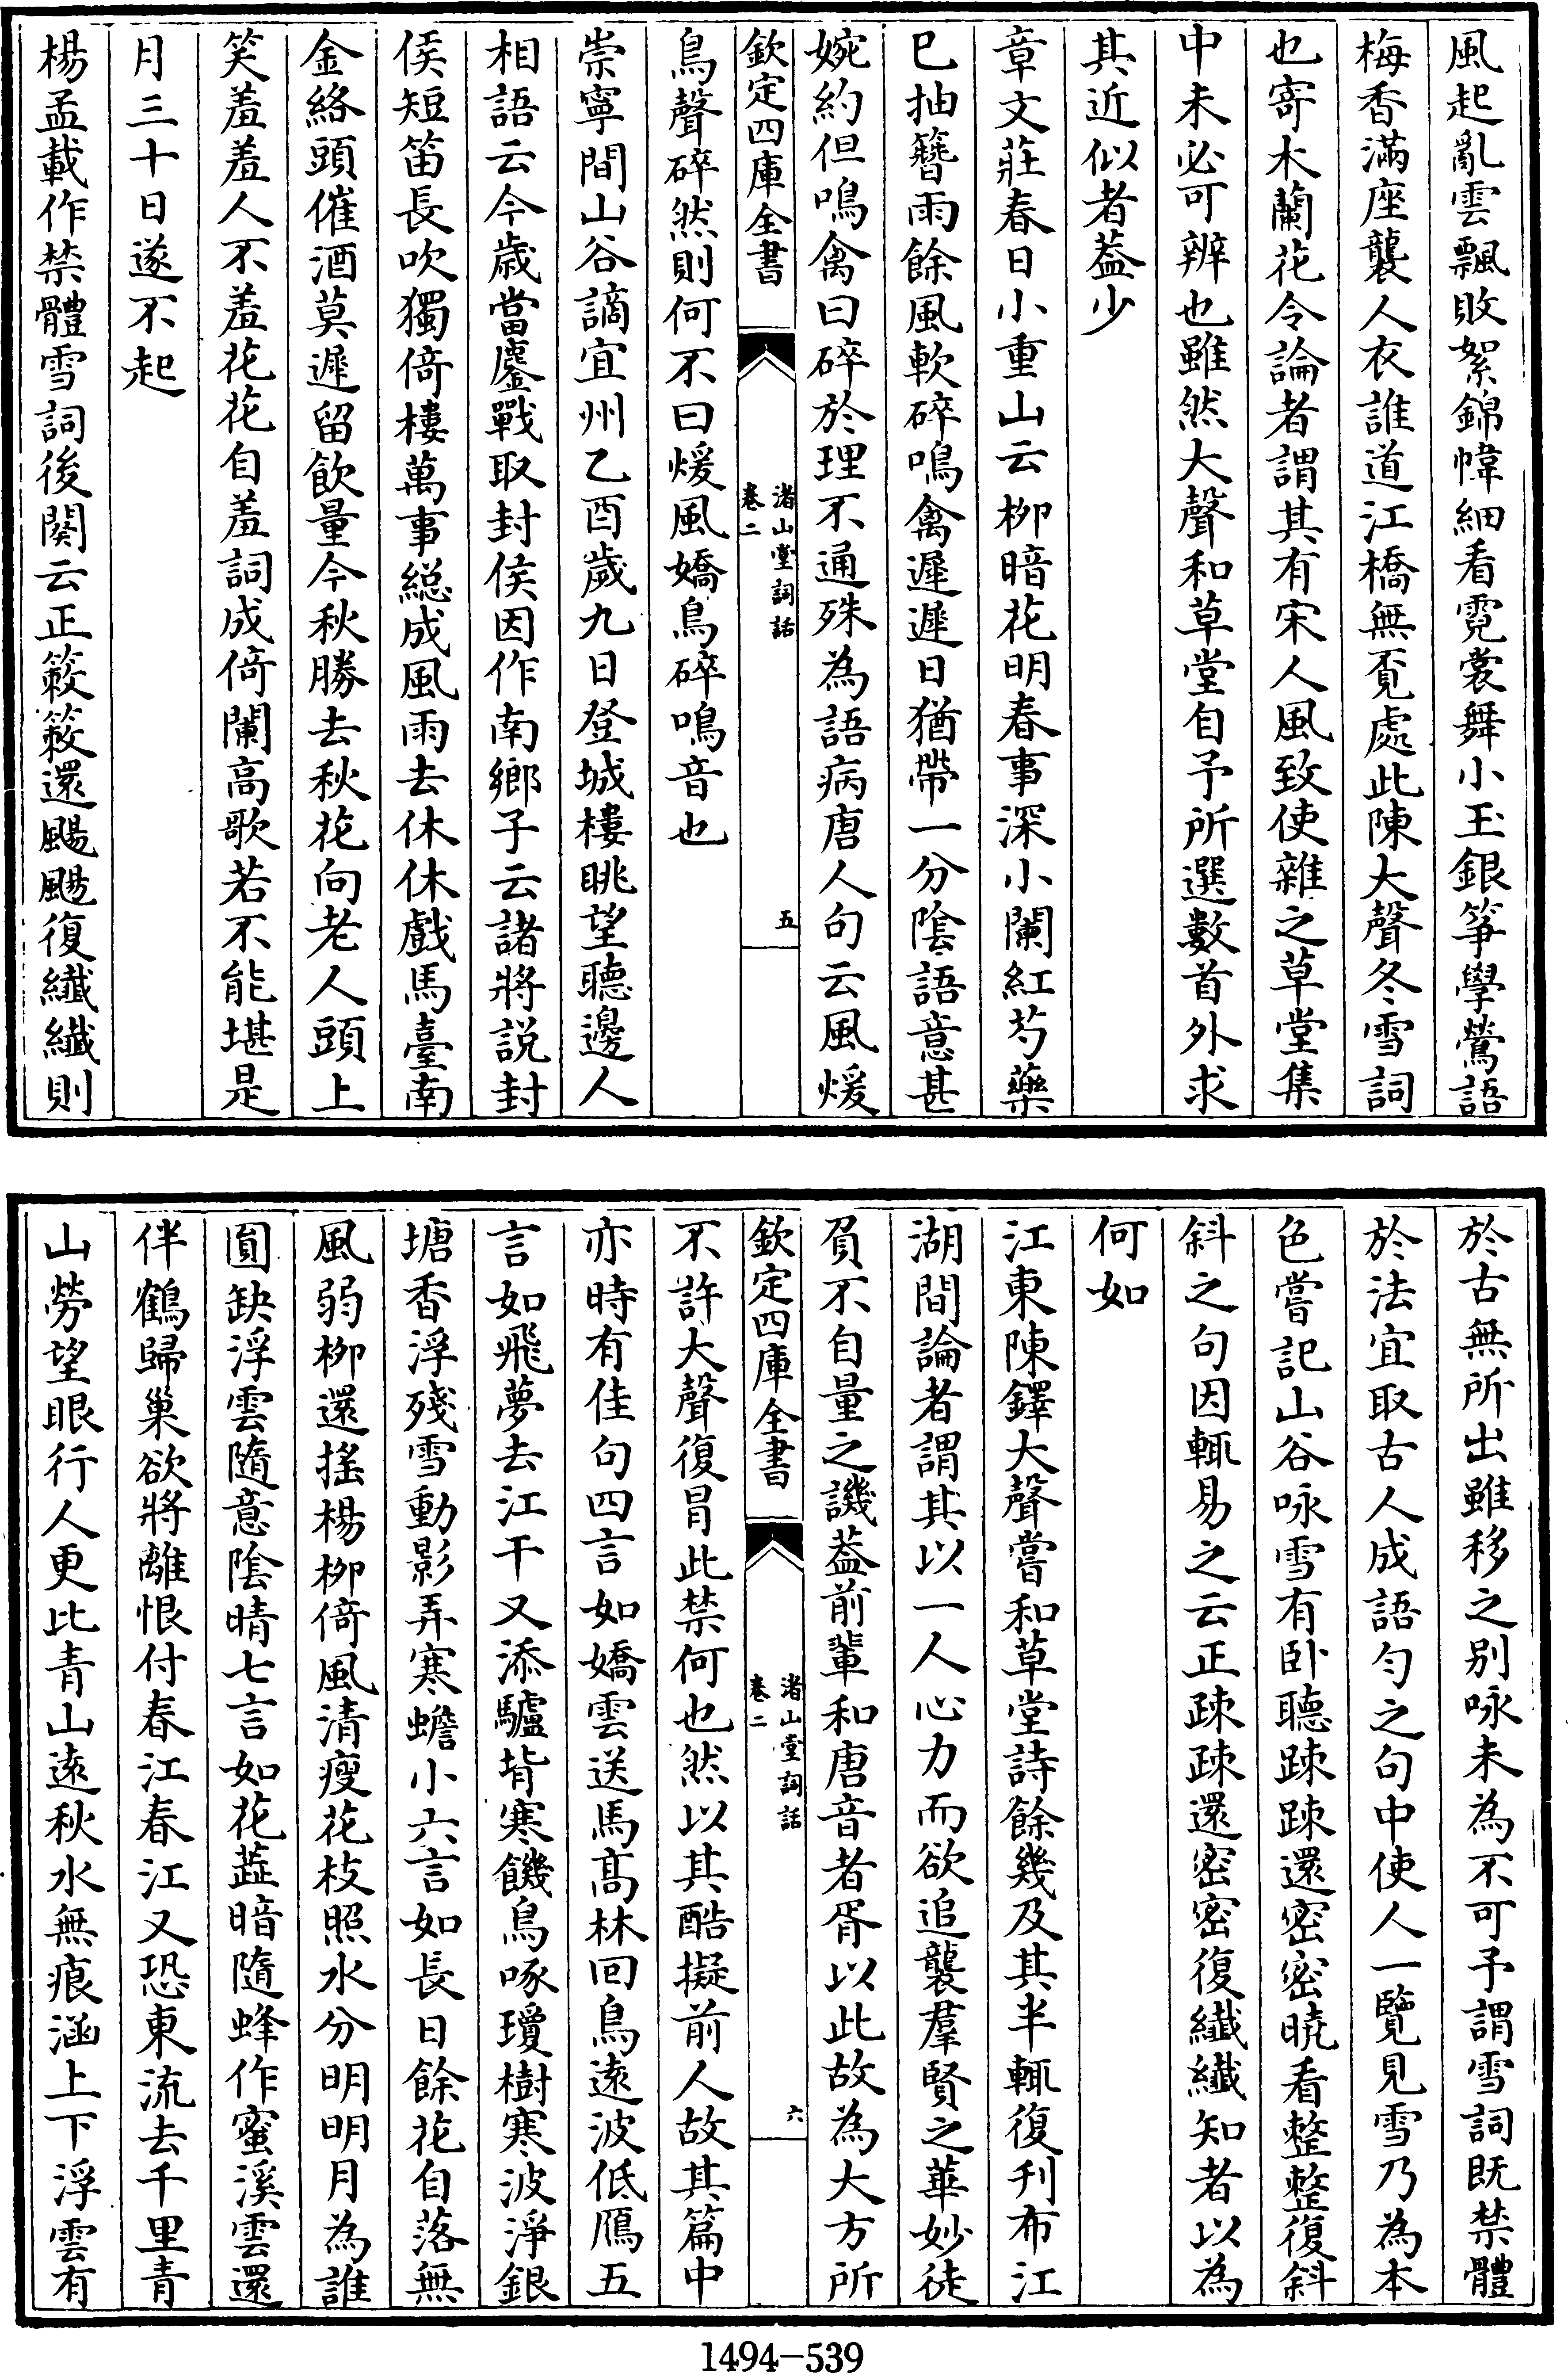 風起亂雲飄敗絮錦幃細看霓裳舞小玉銀箏學鶯語
梅香滿座襲人衣誰道江橋無覔處此陳大聲冬雪詞
也寄木蘭花令論者謂其有宋人風致使雜之草堂集
中未必可辨也雖然大聲和草堂自予所選數首外求
其近似者葢少
章文莊春日小重山云栁暗花明春事深小闌紅芍藥
已抽簪雨餘風軟碎鳴禽遲遲日猶帶一分陰語意甚
婉約但鳴禽曰碎於理不通殊為語病唐人句云風煖
欽定四庫全書
渚山堂詞話
卷二
五
鳥聲碎然則何不曰煖風嬌鳥碎鳴音也
崇寧間山谷謫宜州乙酉歲九日登城樓眺望聽邊人
相語云今歲當鏖戰取封侯因作南鄉子云諸將説封
侯短笛長吹獨倚樓萬事総成風雨去休休戲馬臺南
金絡頭催酒莫遲留飲量今秋勝去秋花向老人頭上
笑羞羞人不羞花花自羞詞成倚闌高歌若不能堪是
月三十日遂不起
楊孟載作禁體雪詞後闋云正簌簌還颺颺復纖纖則
於古無所出雖移之别咏未為不可予謂雪詞既禁體
於法宜取古人成語匀之句中使人一覽見雪乃為本
色嘗記山谷咏雪有卧聽踈踈還密密曉看整整復斜
斜之句因輒易之云正疎疎還密密復纖纖知者以為
何如
江東陳鐸大聲嘗和草堂詩餘幾及其半輒復刊布江
湖間論者謂其以一人心力而欲追襲羣賢之華妙徒
負不自量之譏葢前輩和唐音者胥以此故為大方所
欽定四庫全書
渚山堂詞話
卷二
六
不許大聲復冒此禁何也然以其酷擬前人故其篇中
亦時有佳句四言如嬌雲送馬髙林回鳥遠波低鴈五
言如飛夢去江干又添驢背寒饑鳥啄瓊樹寒波淨銀
塘香浮殘雪動影弄寒蟾小六言如長日餘花自落無
風弱栁還搖楊栁倚風清瘦花枝照水分明明月為誰
圓缺浮雲隨意陰晴七言如花蕋暗隨蜂作蜜溪雲還
伴鶴歸巢欲將離恨付春江春江又恐東流去千里青
山勞望眼行人更比青山遠秋水無痕涵上下浮雲有
1494-539